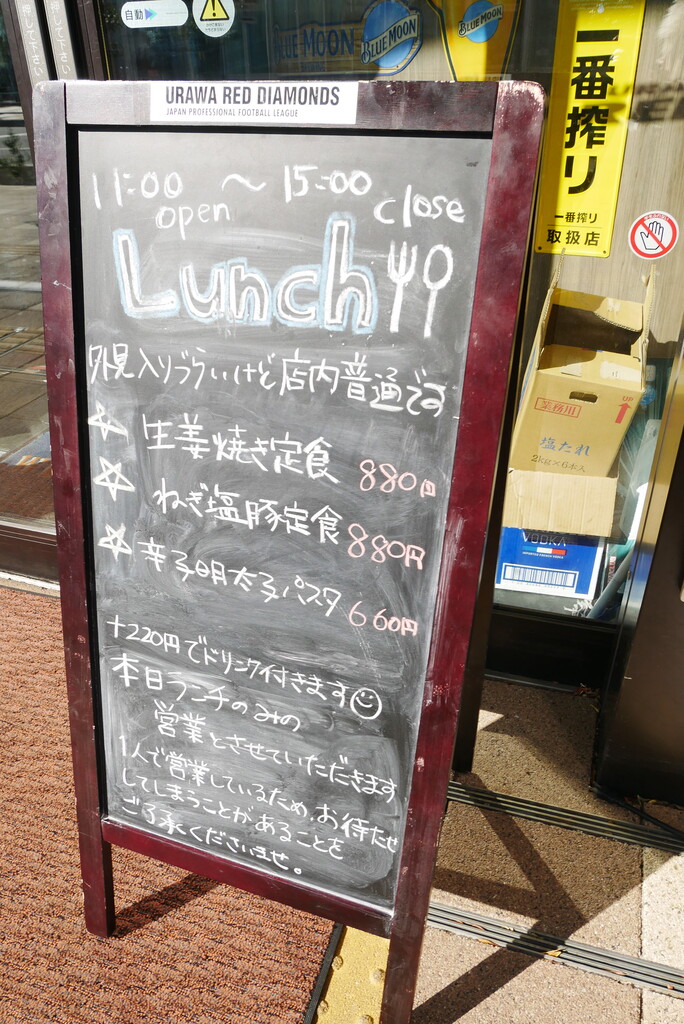 自動
BLUE MOON
BLUE MOON
BLUE MOON
一番搾り
一番搾り
取扱店
URAWA RED DIAMONDS
JAPAN PROFESSIONAL FOOTBALL LEAGUE
11:00 〜 15:00
open close
Lunch
外見入りづらいけど店内普通です
☆ 生姜焼き定食 880円
☆ ねぎ塩豚定食 880円
☆ 辛子明太子パスタ 660円
+220円でドリンク付きます
本日ランチのみの
営業とさせていただきます
1人で営業しているため、お待たせ
してしまうことがあることを
ご了承くださいませ。
業務用
UP
塩たれ
2kg×6本入
VODKA